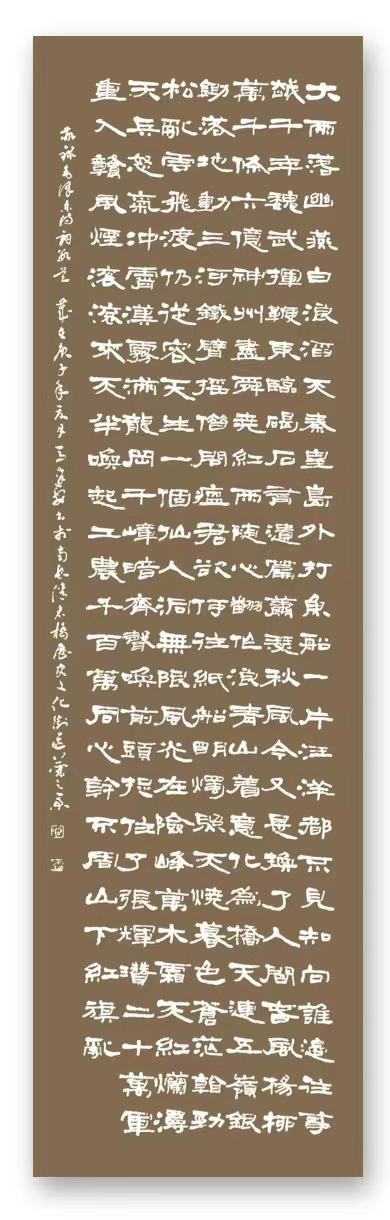 大雨落幽燕白浪滔天秦皇島外打魚船一片汪洋都不見知向誰邊往事
越千年魏武揮鞭東臨碣石有遺篇蕭瑟秋風今又是換了人間春風楊柳
萬千條六億神州盡舜堯紅雨隨心翻作浪青山着意化為橋天連五嶺銀
鋤落地動三河鐵臂搖借問瘟君欲何往紙船明燭照天燒暮色蒼茫看勁
松亂雲飛渡仍從容天生一個仙人洞無限風光在險峰萬木霜天紅爛漫
天兵怒氣沖霄漢霧滿龍岡千嶂暗齊聲喚前頭捉住了張輝瓚二十萬軍
重入贛風煙滾滾來天半喚起工農千百萬同心幹不周山下紅旗亂
毛澤東詩詞 歲在庚子年 書於南昌 橋歷史文化街區